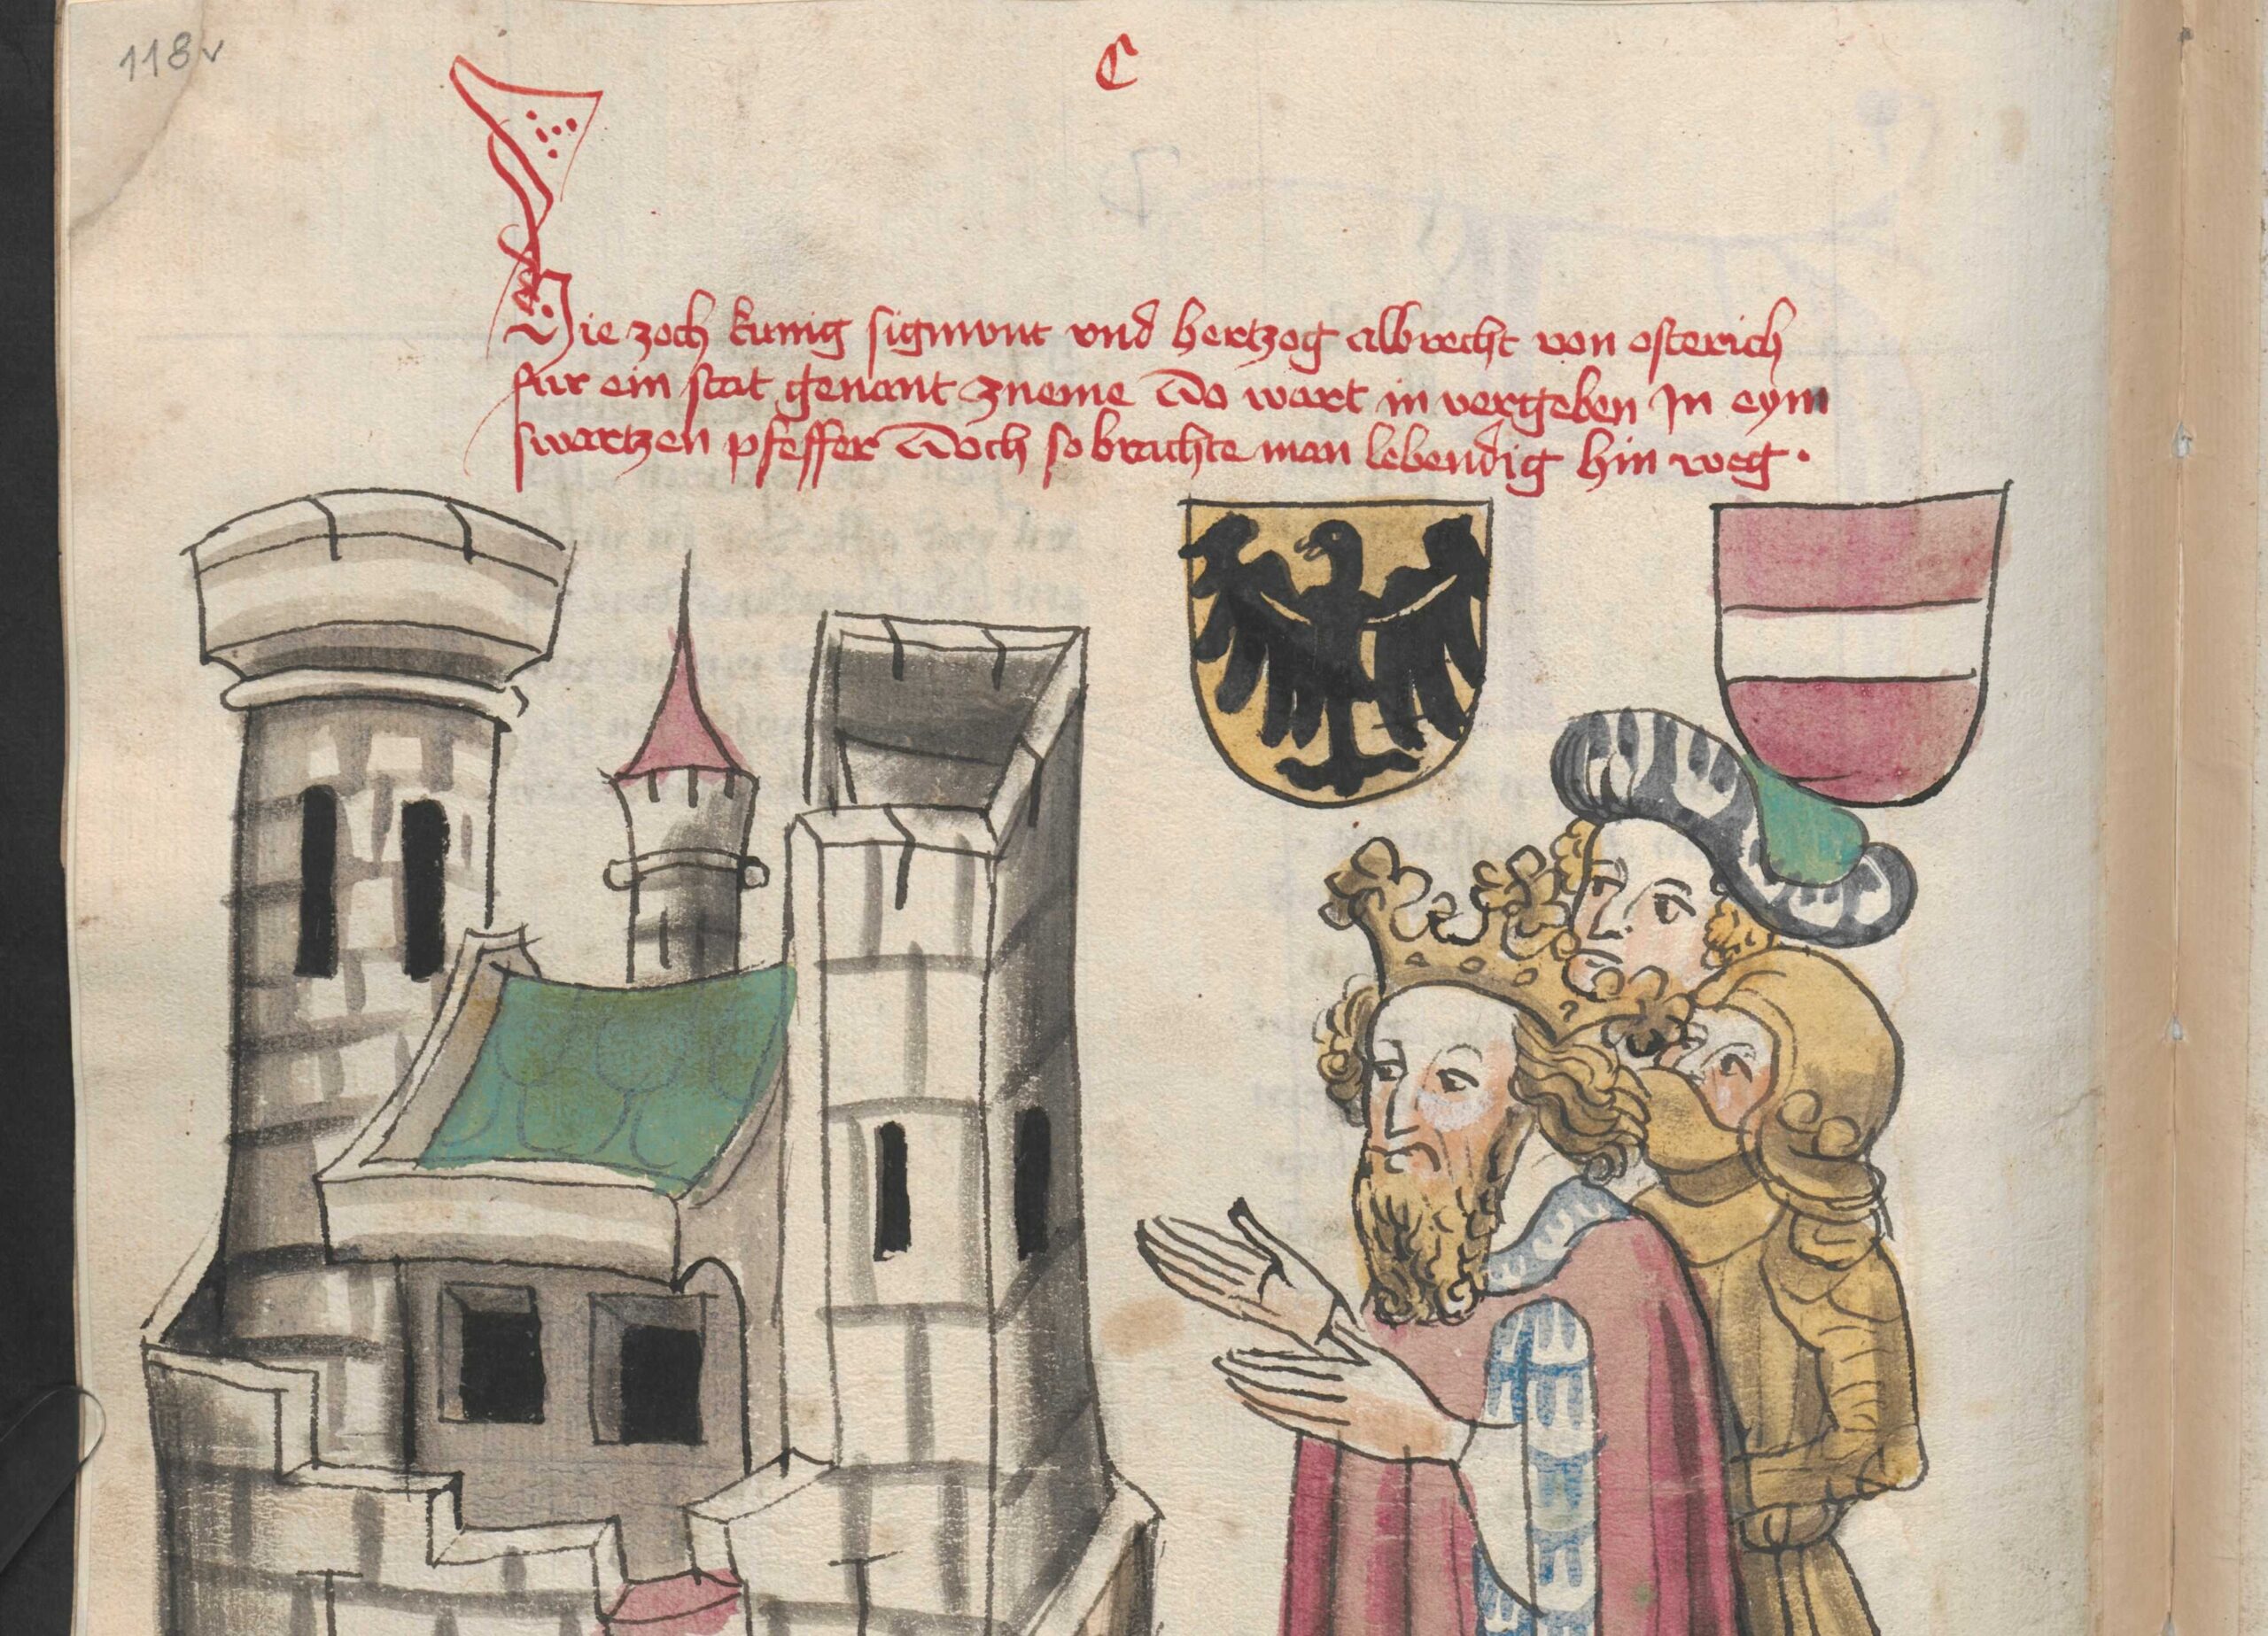 118v
C
Hie zoch kunig sigmont vnd hertzog albrecht von osterich
fur ein stat genant zneme Do wart in vergeben In eym
swartzen pfeffer Doch so brachte man lebendig hin weg.